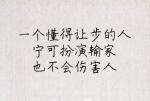 一个懂得让步的人
宁可扮演输家
也不会伤害人